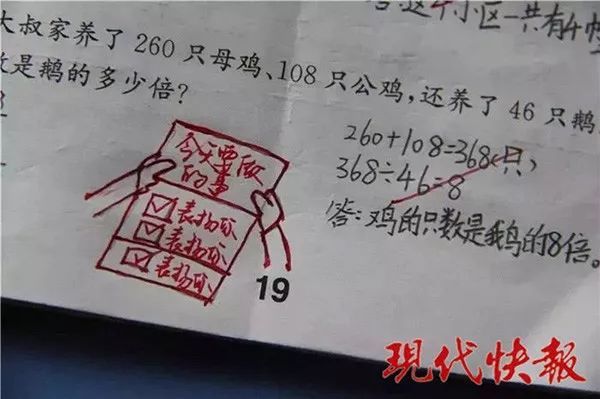 小区一共有4幢
大叔家养了 260 只母鸡、108 只公鸡,还养了 46 只鹅
数是鹅的多少倍?
260+108=368(只)
368÷46=8
答:鸡的只数是鹅的8倍。
今天要做
的事
表扬你
表扬你
表扬你
19
现代快報